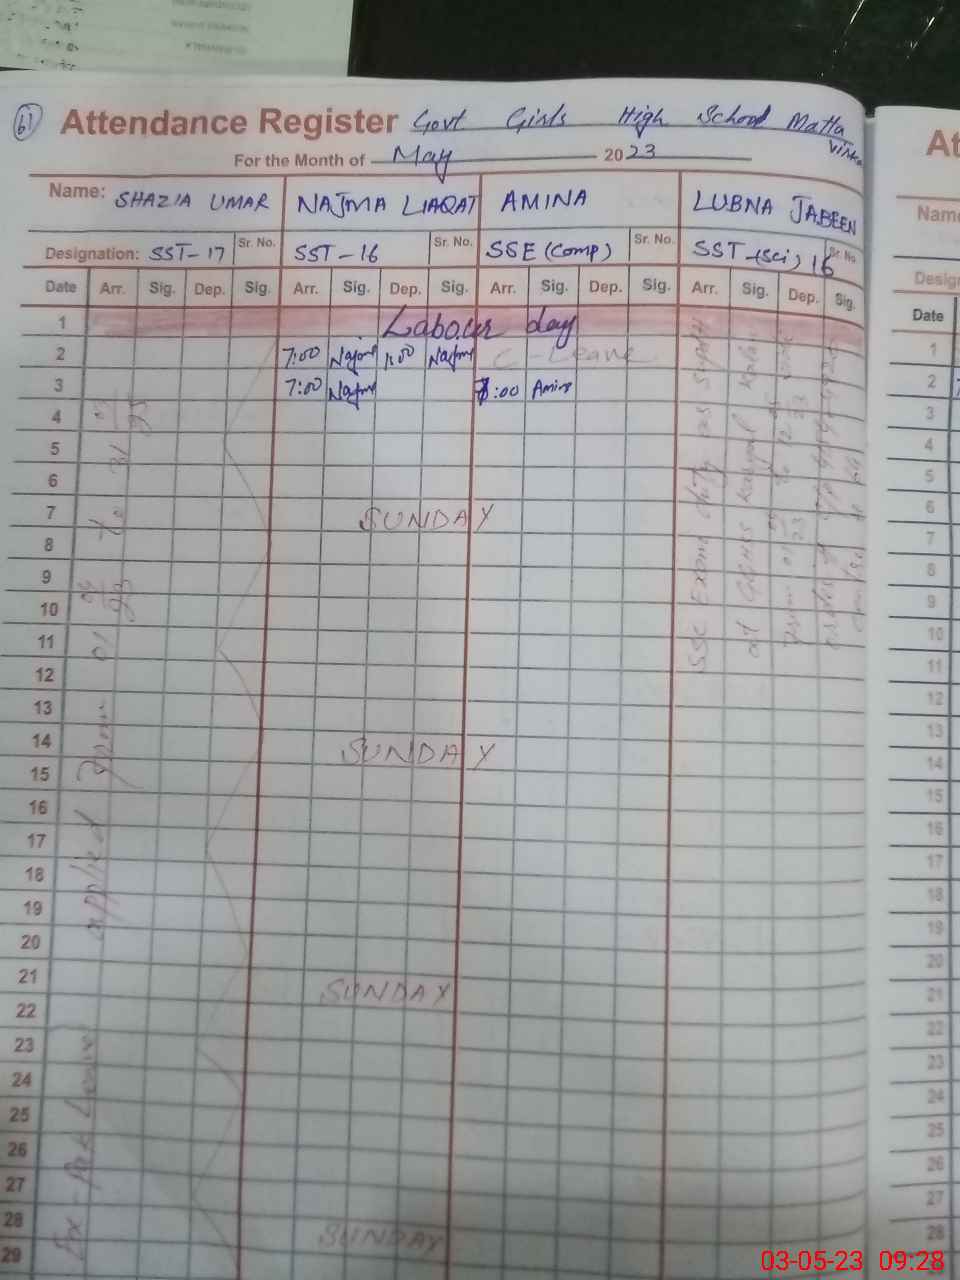 61
Attendance Register Govt Girls High School Matta
For the Month of May 2023
Name: SHAZIA UMAR NAJMA LIAQAT AMINA LUBNA JABEEN
Designation: SST-17 Sr. No. SST-16 Sr. No. SSE (Comp) Sr. No. SST-(Sci) 16 Sr. No.
Date Arr. Sig. Dep. Sig. Arr. Sig. Dep. Sig. Arr. Sig. Dep. Sig. Arr. Sig. Dep. Sig.
1 Labour day
2 7:00 Najma 1:00 Najma C-Leave
3 7:00 Najma 8:00 Amina
4
5
6
7 SUNDAY
8
9
10
11
12
13
14 SUNDAY
15
16
17
18
19
20
21 SUNDAY
22
23
24
25
26
27
28 SUNDAY
29
Ex-Pak Leave applied from 01 05 23 to 31 05 23
SSC Exam duty as Supdtt
at GGHSS
from 01 05 23 to 12 05 23
At
Name
Design
Date
1
2
3
4
5
6
7
8
9
10
11
12
13
14
15
16
17
18
19
20
21
22
23
24
25
26
27
28
03-05-23 09:28